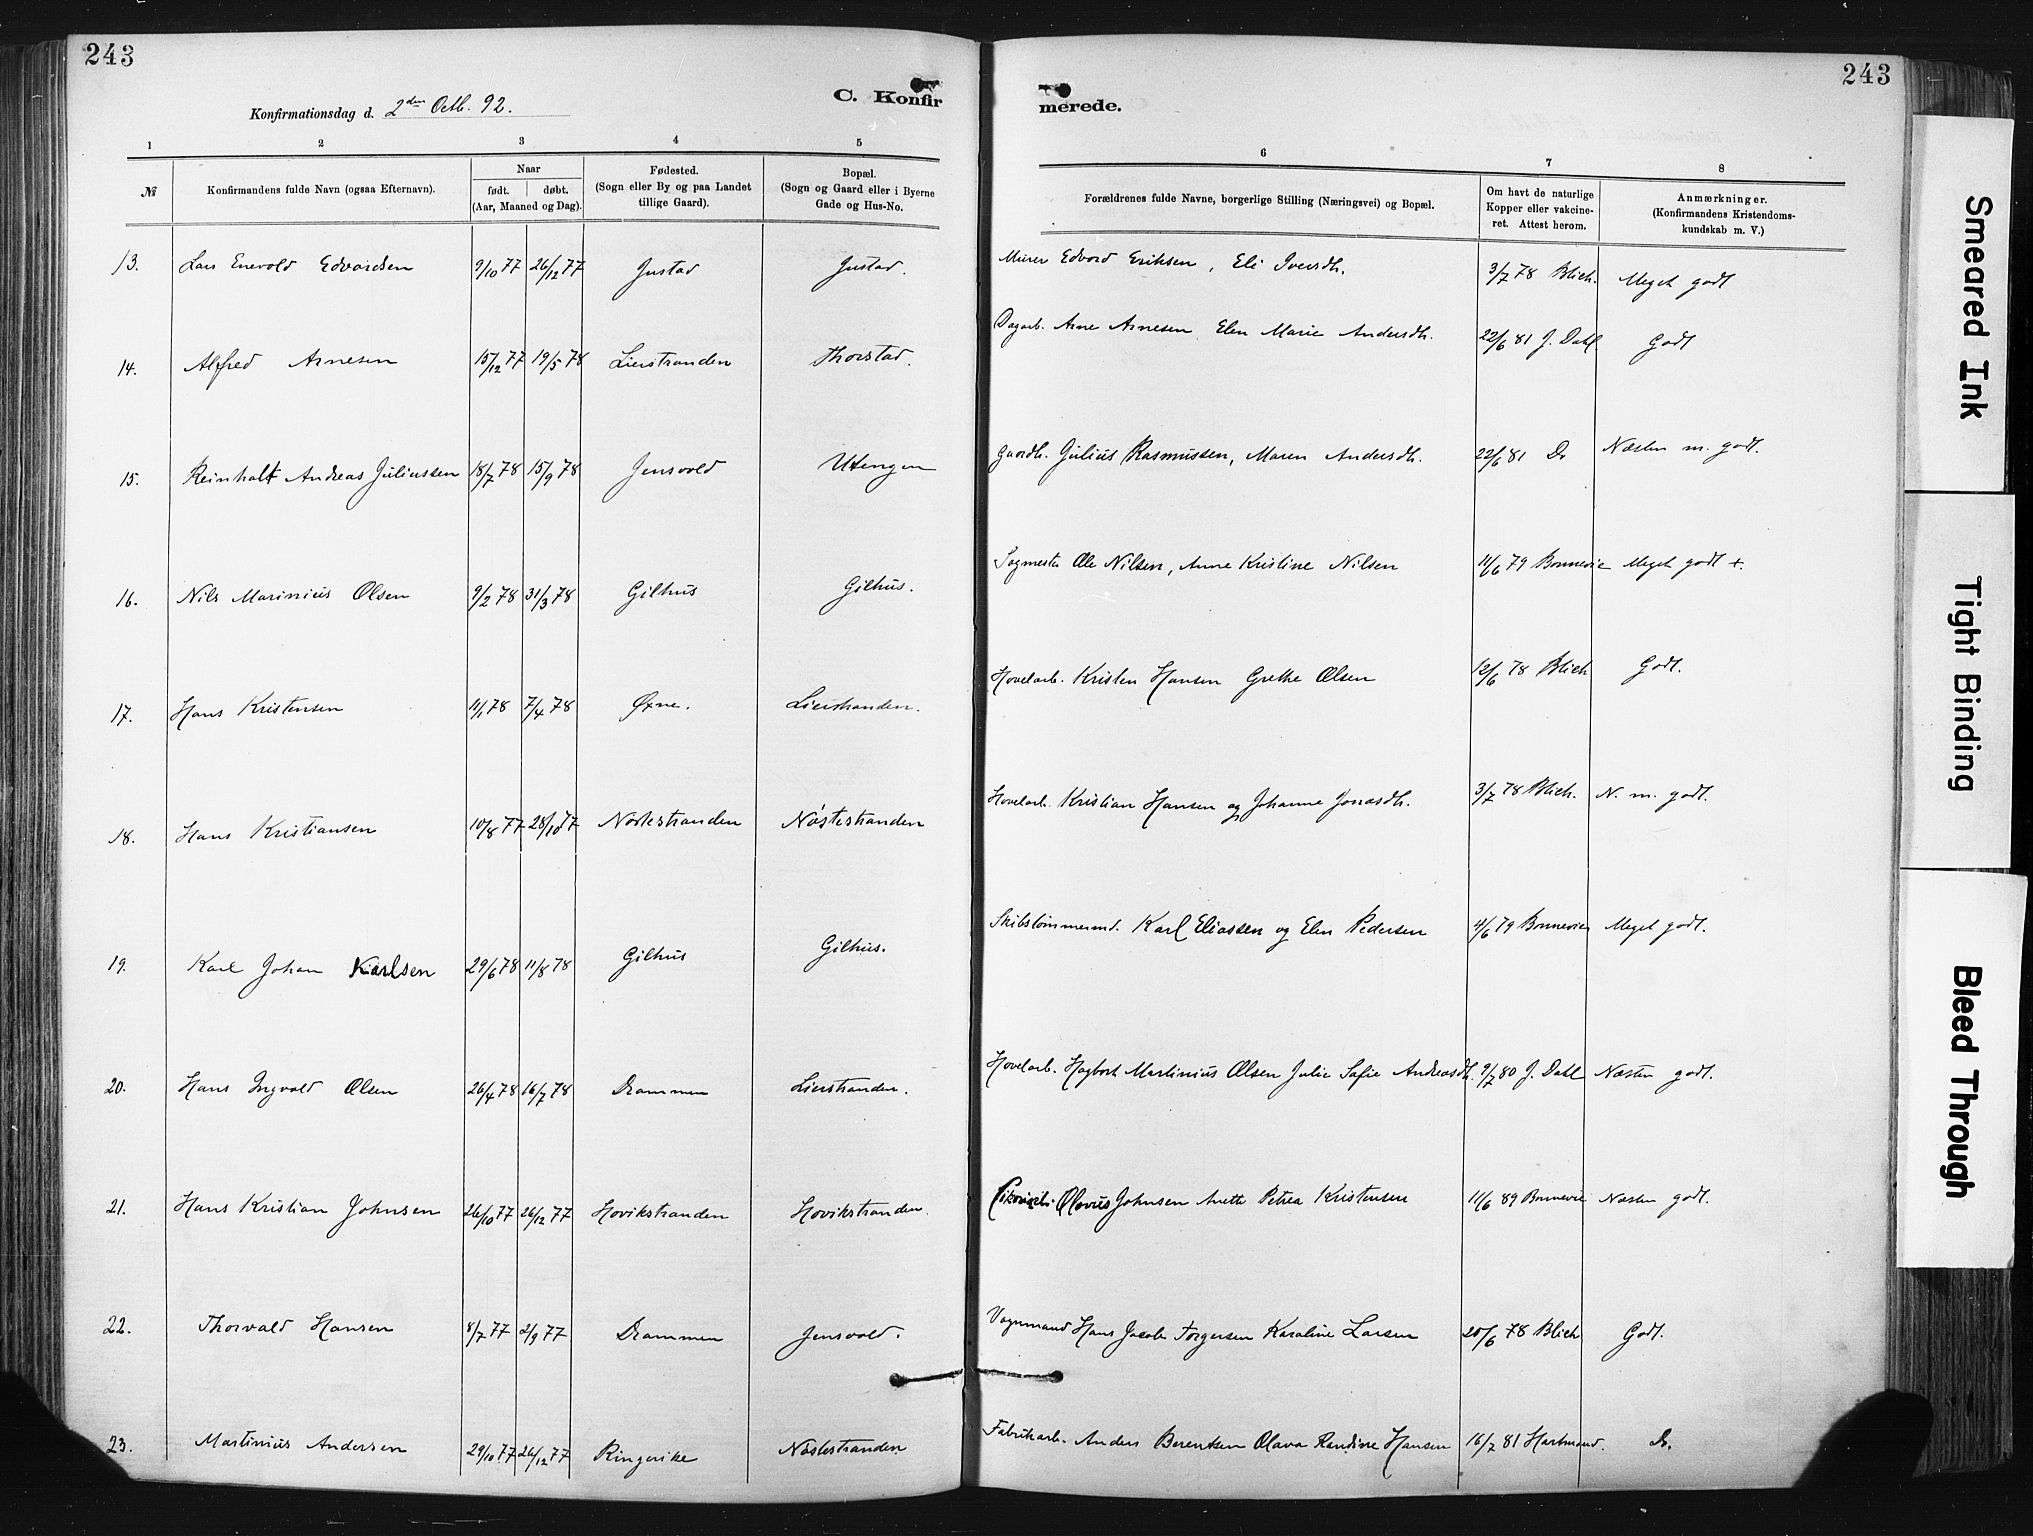 243
243
Konfirmationsdag d. 2den Octb. 92.
C. Konfir
merede.
1 2 3 4 5 6 7 8
№ Konfirmandens fulde Navn (ogsaa Efternavn). Naar født. døbt. (Aar, Maaned og Dag). Fødested. (Sogn eller By og paa Landet tillige Gaard). Bopæl. (Sogn og Gaard eller i Byerne Gade og Hus-No. Forældrenes fulde Navne, borgerlige Stilling (Næringsvei) og Bopæl. Om havt de naturlige Kopper eller vakcineret. Attest herom. Anmærkninger. (Konfirmandens Kristendomskundskab m. V.)
13. Lars Enevold Edvardsen 9/10 77 26/12 77 Justad Justad. Murer Edvard Eriksen, Eli Iversdh. 3/7 78 Blich. Meget godt
14. Alfred Arnesen 15/12 77 19/5 78 Lierstranden Thorstad. Dagarb. Arne Arnesen Elen Marie Andersdh. 22/6 81 J. Dahl Godt
15. Reinhalt Andreas Juliussen 18/7 78 15/9 78 Jensvold Utengen Gaardb. Julius Rasmussen, Maren Andersdh. 22/6 81 Do Næsten m. godt.
16. Nils Marinius Olsen 9/2 78 31/3 78 Gilhus Gilhus. Sagmester Ole Nilsen, Anne Kristine Nilsen 11/6 79 Bonnevie Meget godt +.
17. Hans Kristensen 11/1 78 7/4 78 Øxne. Lierstranden. Hovelarb. Kristen Hansen Grethe Olsen 12/6 78 Blich Godt.
18. Hans Kristiansen 10/8 77 28/10 77 Nøstestranden Nøstestranden Hovelarb. Kristian Hansen og Johanne Jonasdh. 3/7 78 Blich. N. m. godt.
19. Karl Johan Karlsen 29/6 78 11/8 78 Gilhus Gilhus. Skibstømmermd. Karl Eliassen og Elen Pedersen 4/6 79 Bonnevie Meget godt.
20. Hans Ingvald Olsen 26/4 78 16/7 78 Drammen Lierstranden. Hovelarb. Hagbart Martinius Olsen Julie Sofie Andreasdh. 9/7 80 J. Dahl Næsten godt.
21. Hans Kristian Johnsen 26/10 77 26/12 77 Hovikstranden Hovikstranden. Olavus Johnsen Anette Petrea Kristensen 11/6 89 Bonnevie Næsten godt.
22. Thorvald Hansen 8/7 77 2/9 77 Drammen Jensvold. Vognmand Hans Jacob Torgersen Karoline Larsen 20/6 78 Blich Godt.
23. Martinius Andersen 29/10 77 26/12 77 Ringerike Nøstestranden Fabrikarb. Anders Berentsen Olava Randine Hansen 16/7 81 Hartmand. Do.
Smeared Ink
Tight Binding
Bleed Through